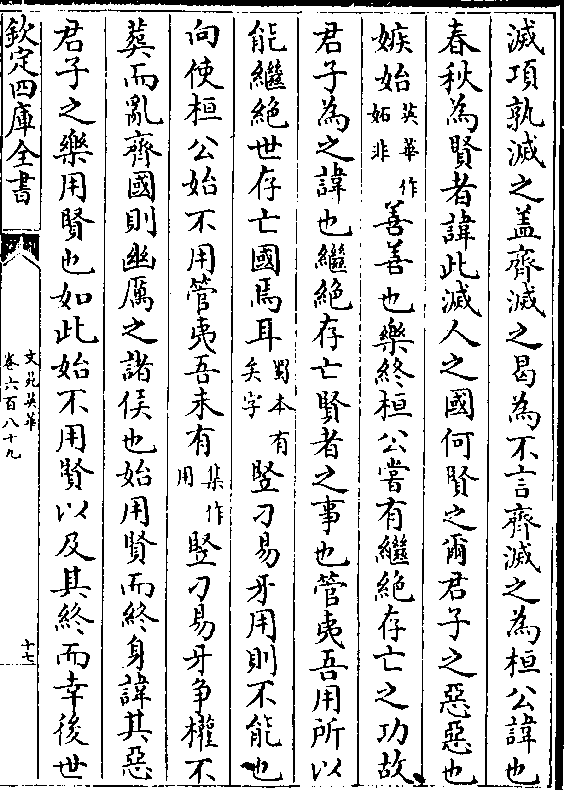 滅項孰滅之盖齊滅之曷為不言齊滅之為桓公諱也
春秋為賢者諱此滅人之國何賢之爾君子之惡惡也
嫉始英華作妬非善善也樂終桓公嘗有繼絶存亡之功故
君子為之諱也繼絶存亡賢者之事也管夷吾用所以
能繼絶世存亡國焉耳蜀本有矣字竪刁易牙用則不能也
向使桓公始不用管夷吾未有集作用竪刁易牙争權不
葬而亂齊國則幽厲之諸侯也始用賢而終身諱其惡
君子之樂用賢也如此始不用賢以及其終而幸後世
欽定四庫全書
文苑英華
卷六百八十九
十七